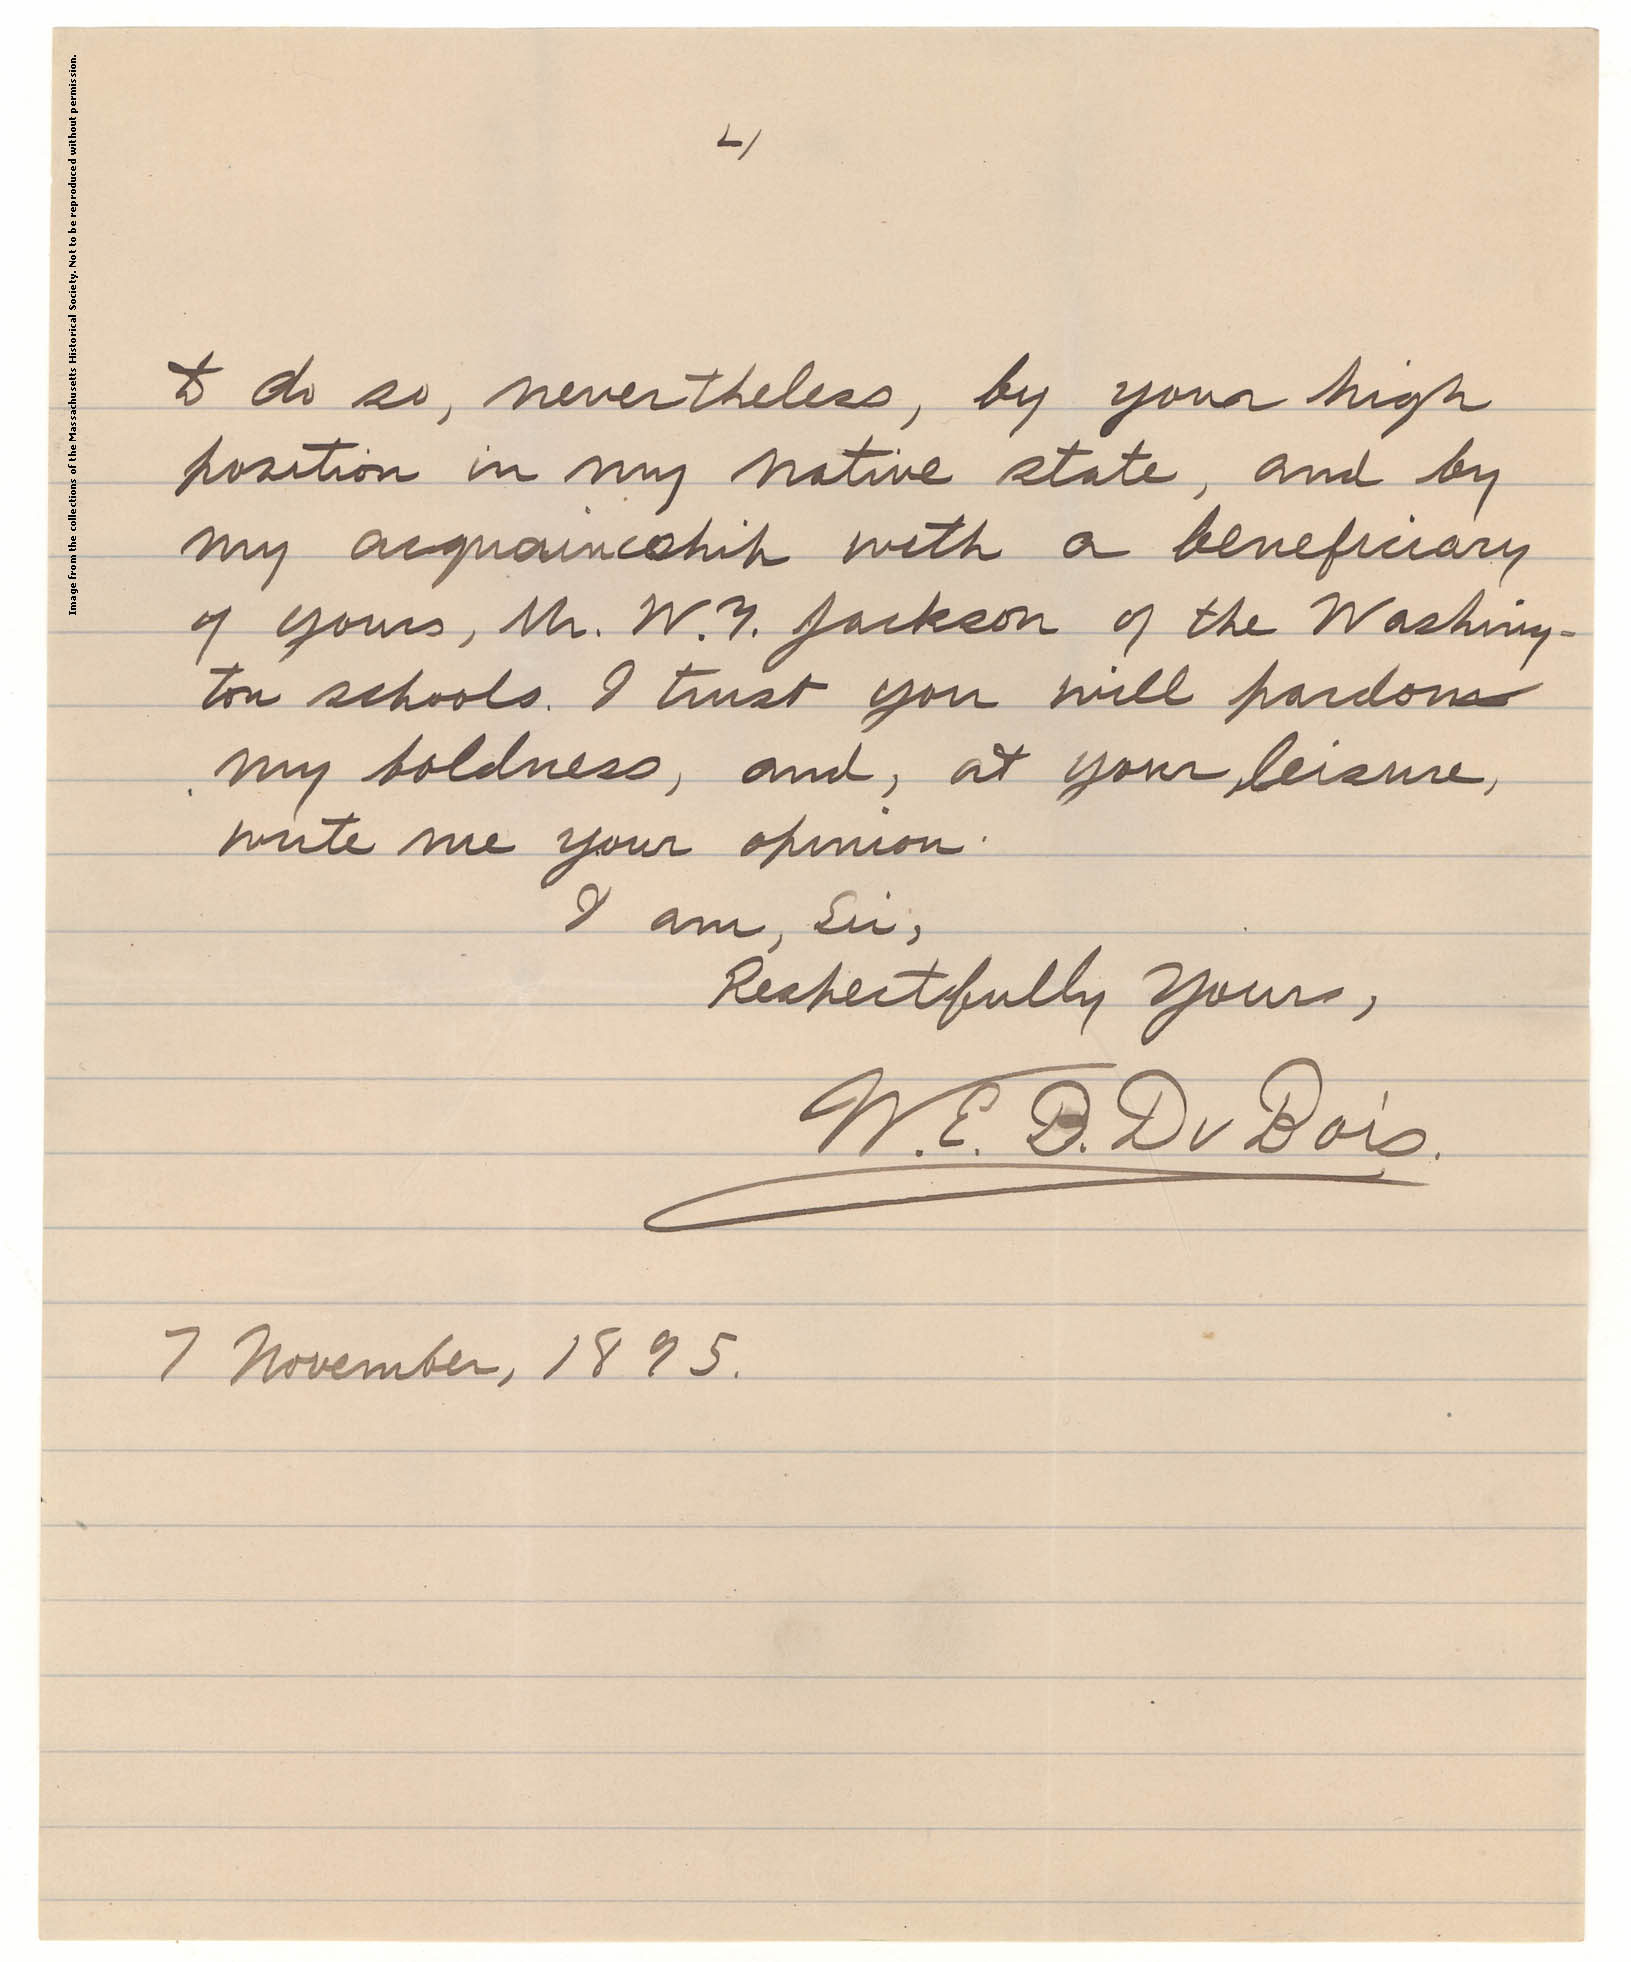 Image from the collections of the Massachusetts Historical Society. Not to be reproduced without permission.
4
to do so, nevertheless, by your high
position in my native state, and by
my acquainceship with a beneficiary
of yours, Mr. W.T. Jackson of the Washing-
ton schools. I trust you will pardon
my boldness, and, at your leisure,
write me your opinion.
I am, Sir,
Respectfully Yours,
W.E.B. Du Bois.
7 November, 1895.